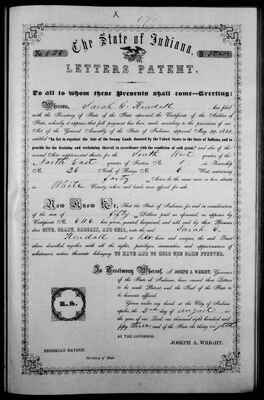 The State of Indiana,
LETTERS PATENT.
To all to whom these Presents shall come—Greeting:
Whereas, Sarah C. Kendall has filed
with the Secretary of the State of the Certificate of the Auditor of
State, whereby it appears that full payment has been made according to the provisions of an
Act of the General Assembly of the State of Indiana, approved May
entitled "An Act to regulate the sale of the Swamp Lands donated by the United States to the State of Indiana, and to
provide for the draining and reclaiming thereof in accordance with the condition of said grant," and also of the
several Acts supplemental thereto for the South West quarter of the
North East quarter of Section No. in Township
No. 26 North of Range No. 6 West containing
Forty Acres be the same more or less situate
in White County, where said lands were offered for sale.
Now Know Ye, That the State of Indiana for and in consideration
of the sum of fifty Dollars paid as aforesaid, as appears by
Certificate No. 686 has given, granted, bargained and sold, and by these Presents
DOES GIVE, GRANT, BARGAIN, AND SELL, unto the said Sarah C.
Kendall and to her heirs and assigns, the said Tract
above described together with all the rights, privileges, immunities, and appurtenances of
whatsoever nature thereunto belonging, TO HAVE AND TO HOLD THE SAME FOREVER.
In Testimony Whereof, I, JOSEPH A. WRIGHT, Governor
of the State of Indiana, have caused these Letters
to be made Patent and the Seal of the State to
be hereunto affixed.
L.S.
Given under my hand, at the City of Indianapolis, the day of August
the year of our Lord, one thousand eight hundred and
fifty three and of the State the thirty
BY THE GOVERNOR,
JOSEPH A. WRIGHT.
NEHEMIAH HAYDEN,
Secretary of State.